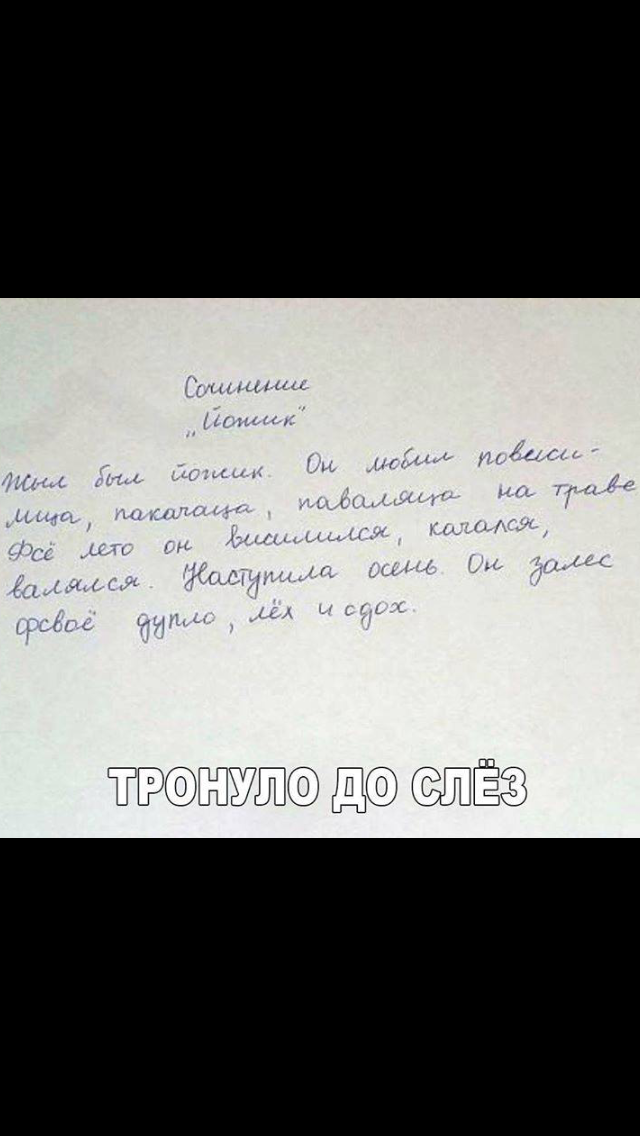 Сочинение
„Йожик"
Жыл был йожик. Он любил повиси-
лица, пакачаца, паваляца на траве
Фсё лето он висилился, качался,
валялся. Наступила осень. Он залес
фсваё дупло, лёх и сдох.
ТРОНУЛО ДО СЛЁЗ